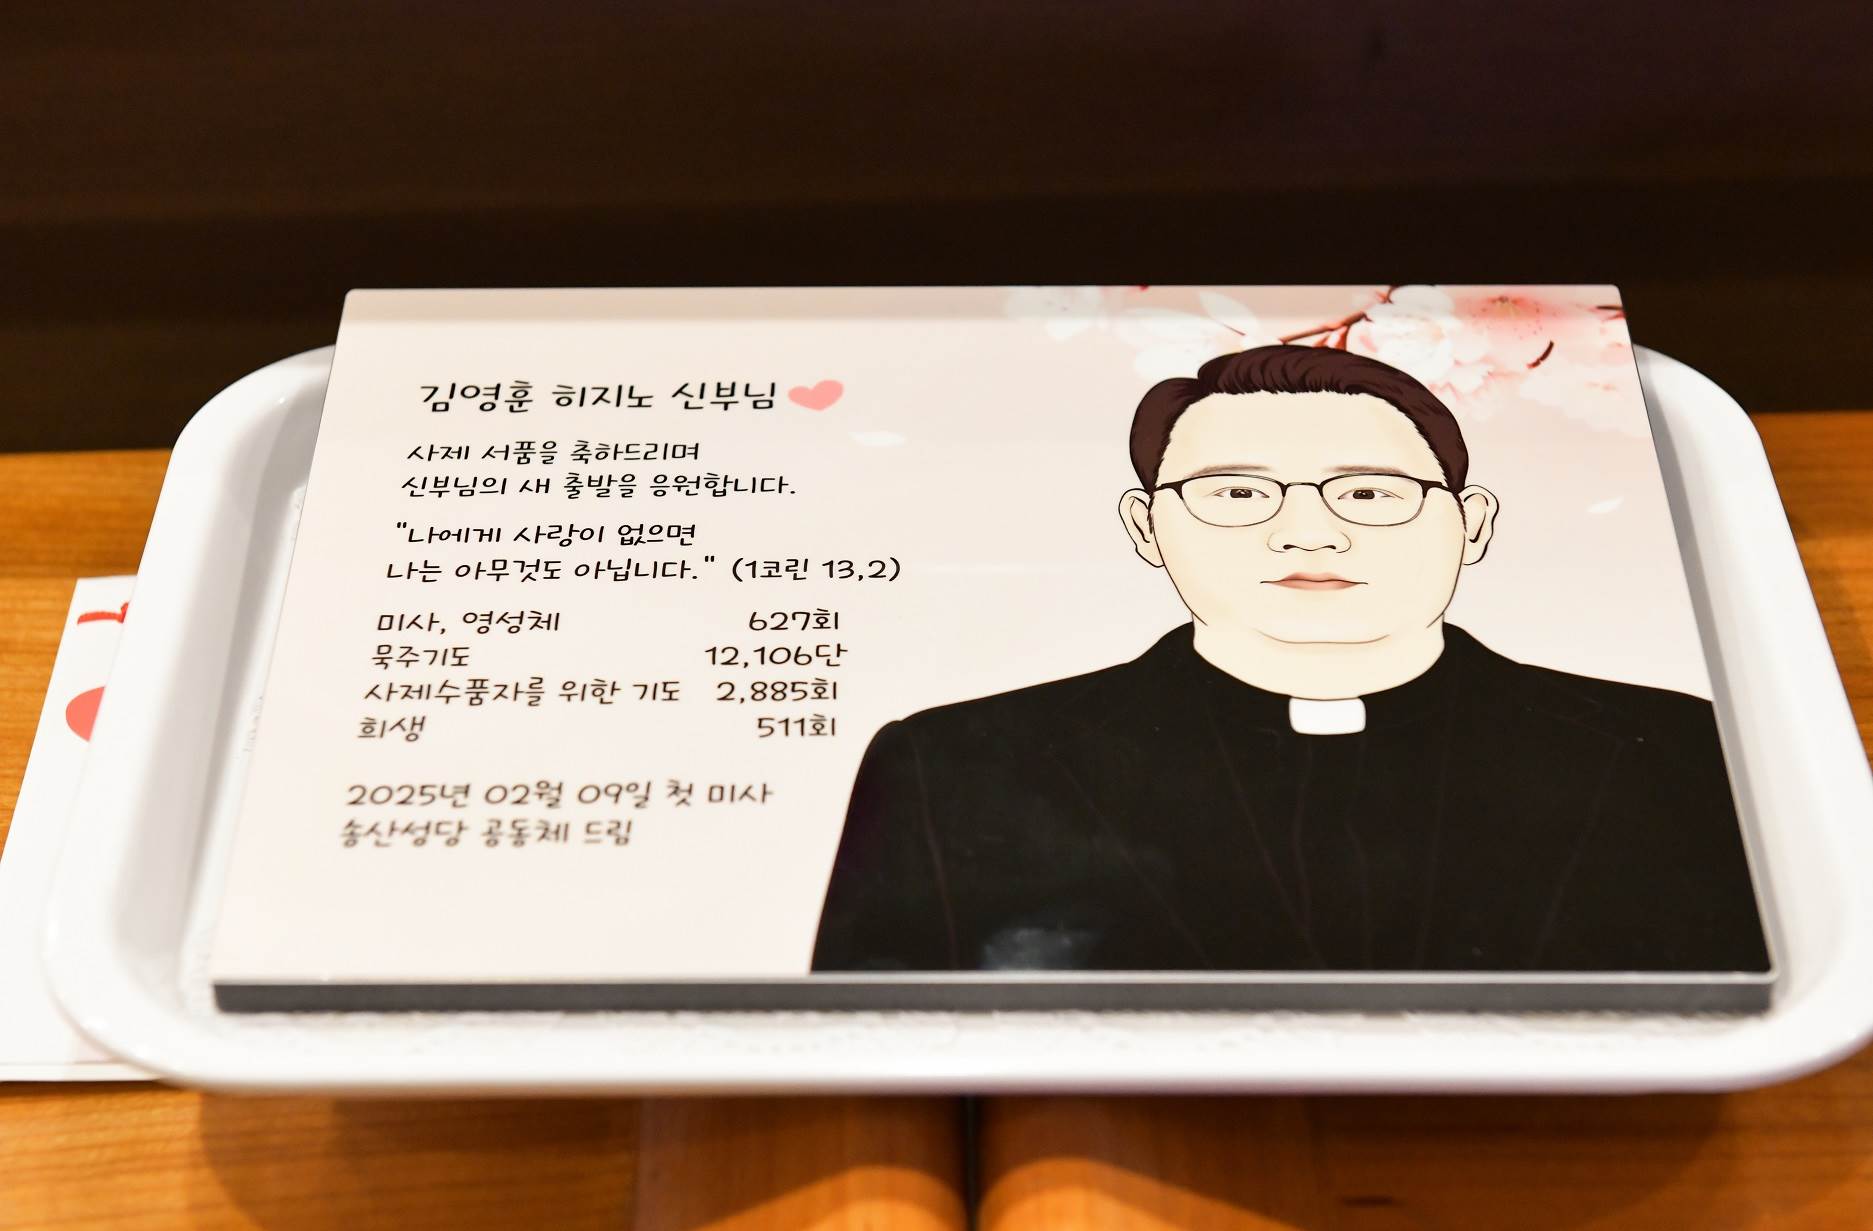 김영훈 히지노 신부님
사제 서품을 축하드리며
신부님의 새 출발을 응원합니다.
"나에게 사랑이 없으면
나는 아무것도 아닙니다." (1코린 13,2)
미사, 영성체 627회
묵주기도 12,106단
사제수품자를 위한 기도 2,885회
희생 511회
2025년 02월 09일 첫 미사
송산성당 공동체 드림